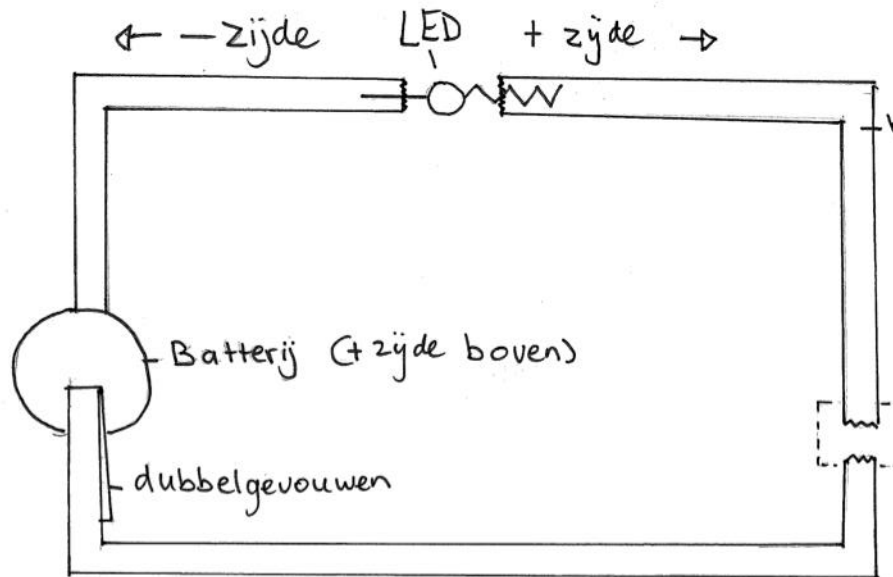 ← — zijde LED + zijde →
Batterij (+ zijde boven)
dubbelgevouwen